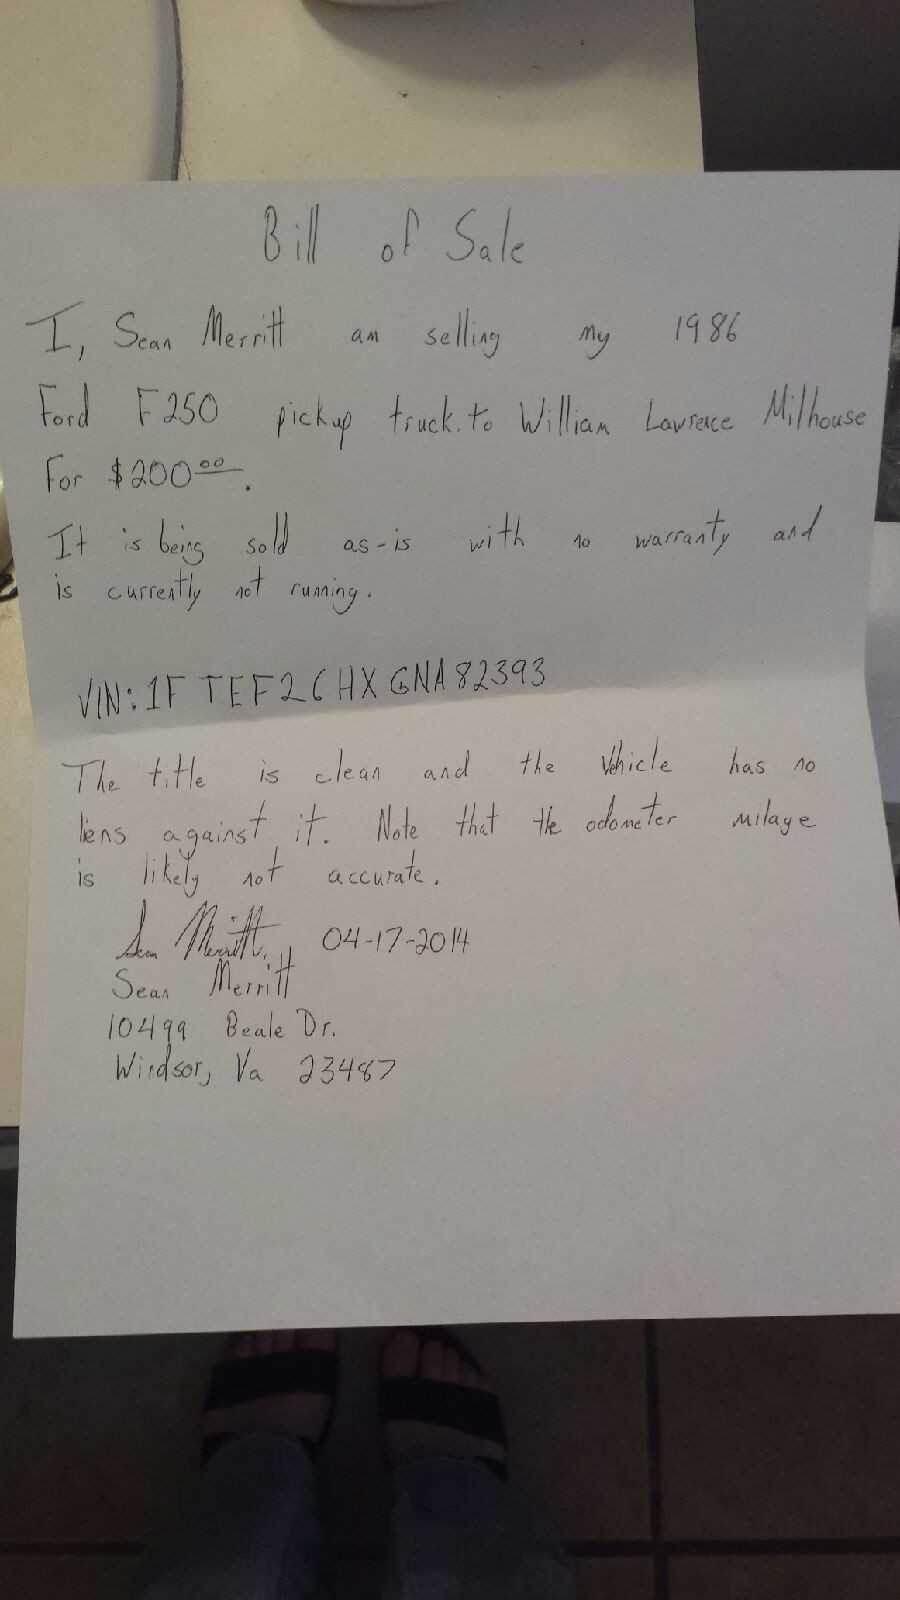 Bill of Sale
I, Sean Merritt am selling my 1986
Ford F250 pickup truck. to William Lawrence Milhouse
For $200.00.
It is being sold as-is with no warranty and
is currently not running.
VIN: 1F TEF26HX GNA82393
The title is clean and the Vehicle has no
liens against it. Note that the odometer milage
is likely not accurate.
Sean Merritt 04-17-2014
Sean Merritt
10499 Beale Dr.
Windsor, Va 23487